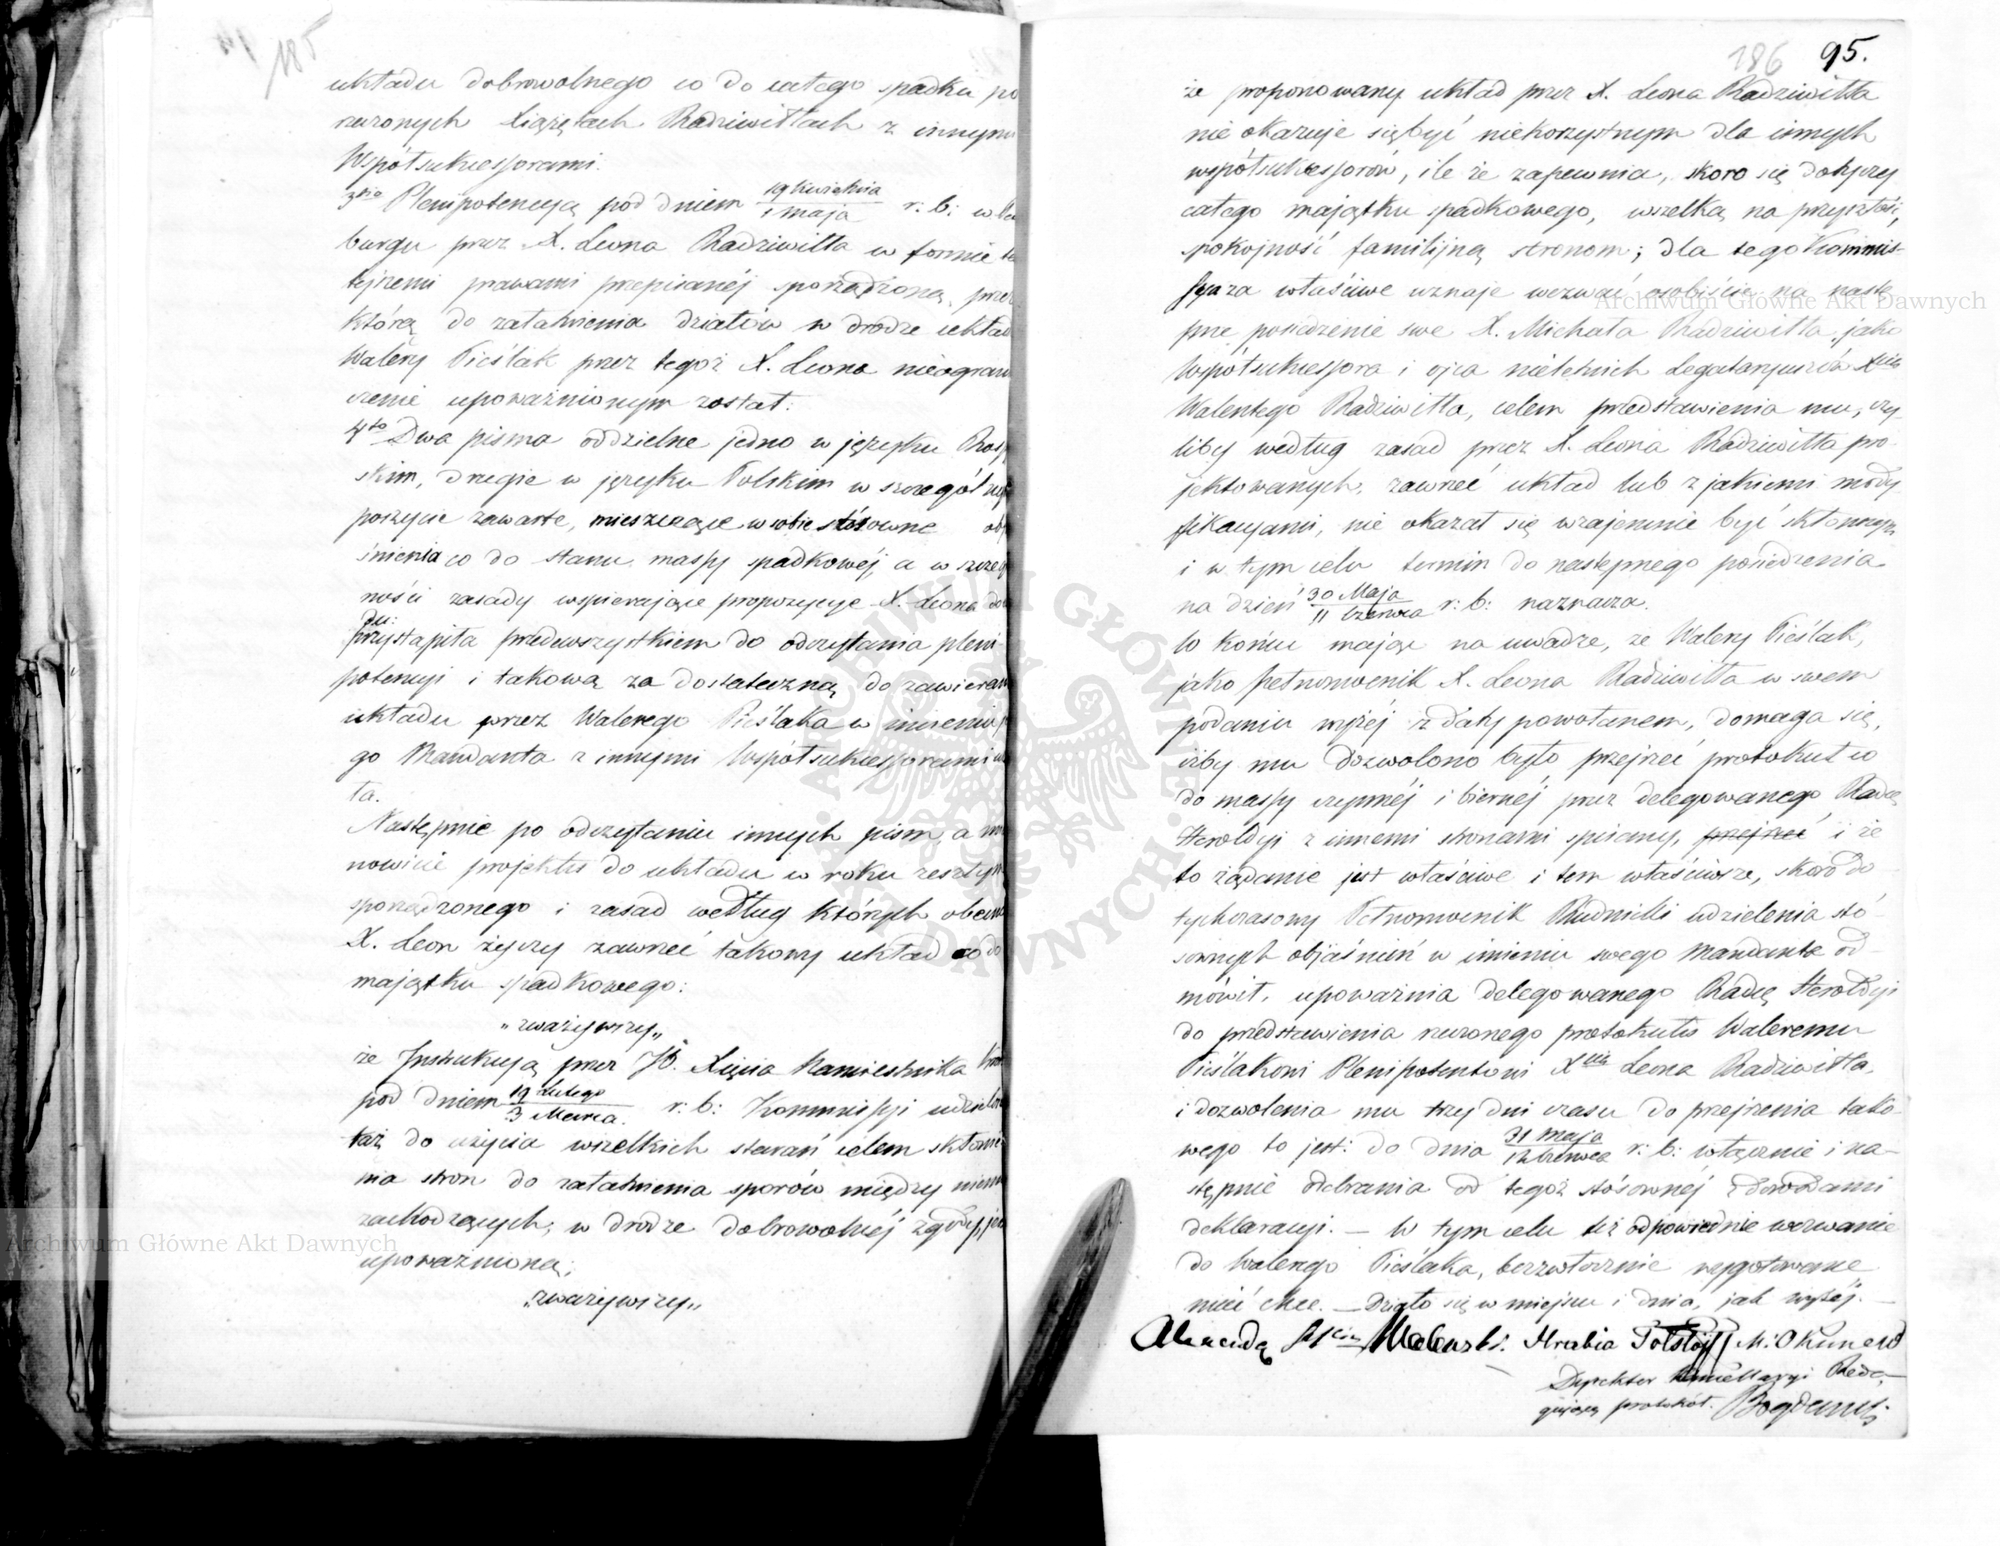 185
układu dobrowolnego co do całego spadku po
rzeczonych Xiążętach Radziwiłłach z innymi
Współsukcessorami.
3tio Plenipotencyą pod dniem 19 Kwietnia / 1 maja r: b: w
burgu przez X. Leona Radziwiłła w formie
tejszemi prawami przepisanéj sporządzoną, przez
którą do załatwienia działów w drodze układu
Walery Pieślak przez tegoż X. Leona nieograni
czenie upoważnionym został:
4to Dwa pisma oddzielne jedno w języku Rossy
skim, drugie w języku Polskim w szczegół
poszycie zawarte, mieszczące w sobie stósowne obja
śnienia co do stanu massy spadkowéj, a w szczegól
ności zasady wspierające propozycye X. Leona do
przystąpiła przedewszystkiem do odczytania pleni
potencyi i takową za dostateczną do zawierania
układu przez Walerego Pieślaka w imieniu
go Mandanta z innymi Współsukcessorami
ła.
Następnie po odczytaniu innych pism, a mia
nowicie projektu do układu w roku zeszłym
sporządzonego i zasad według których obecnie
X. Leon życzy zawrzeć takowy układ co do
majątku spadkowego:
„zważywszy„
że Instrukcyą przez JO. Xięcia Namiestnika
pod dniem 19 Lutego / 3 Marca r: b: Kommissyi udzieloną
taż do użycia wszelkich starań celem skłonie
nia stron do załatwienia sporów między niemi
zachodzących, w drodze dobrowolnéj zgody, jest
upoważnioną;
„zważywszy„
186 95.
że proponowany układ przez X. Leona Radziwiłła
nie okazuje się być niekorzystnym dla innych
współsukcessorów, ile że zapewnia, skoro się dotyczy
całego majątku spadkowego, wszelką na przyszłość,
spokojność familijną stronom; dla tego Kommis-
syia za właściwe uznaje wezwać osobiście na nastę
pne posiedzenie swe X. Michała Radziwiłła, jako
Współsukcessora i ojca nieletnich Legataryuszów Xcia
Walentego Radziwiłła, celem przedstawienia mu, czy-
liby według zasad przez X. Leona Radziwiłła pro-
jektowanych, zawrzeć układ lub z jakiemi mody-
fikacyami, nie okazał się wzajemnie być skłonnym,
i w tym celu termin do następnego posiedzenia
na dzień 30 Maja / 11 Czerwca r: b: naznacza.
W końcu mając na uwadze, że Walery Pieślak,
jako Pełnomocnik X. Leona Radziwiłła w swem
podaniu wyżéj z daty powołanem, domaga się,
iżby mu dozwolono było przejrzeć protokuł co
do massy czynnéj i biernéj przez delegowanego Radcę
Heroldyi z innemi stronami spisany, przejrzeć i że
to żądanie jest właściwe i tem właściwsze, skoro do-
tychczasowy Pełnomocnik Rudnicki udzielenia stó-
sownych objaśnień w imieniu swego Mandanta od-
mówił, upoważnia delegowanego Radcę Heroldyi
do przedstawienia rzeczonego protokułu Waleremu
Pieślakowi Plenipotentowi Xcia Leona Radziwiłła,
i dozwolenia mu trzy dni czasu do przejrzenia tako-
wego to jest: do dnia 31 Maja / 12 Czerwca r: b: włącznie i na-
stępnie odebrania od tegoż stósownéj z dowodami
deklaracyi. — W tym celu też odpowiednie wezwanie
do Walerego Pieślaka, bezzwłocznie wygotowane
mieć chce. — Działo się w miejscu i dniu, jak wyżéj. —
Hrabia Tołstoj M: Okuneff
Dyrektor Kancellaryi Reda-
gujący protokół.
Archiwum Główne Akt Dawnych
Archiwum Główne Akt Dawnych
ARCHIWUM GŁÓWNE AKT DAWNYCH